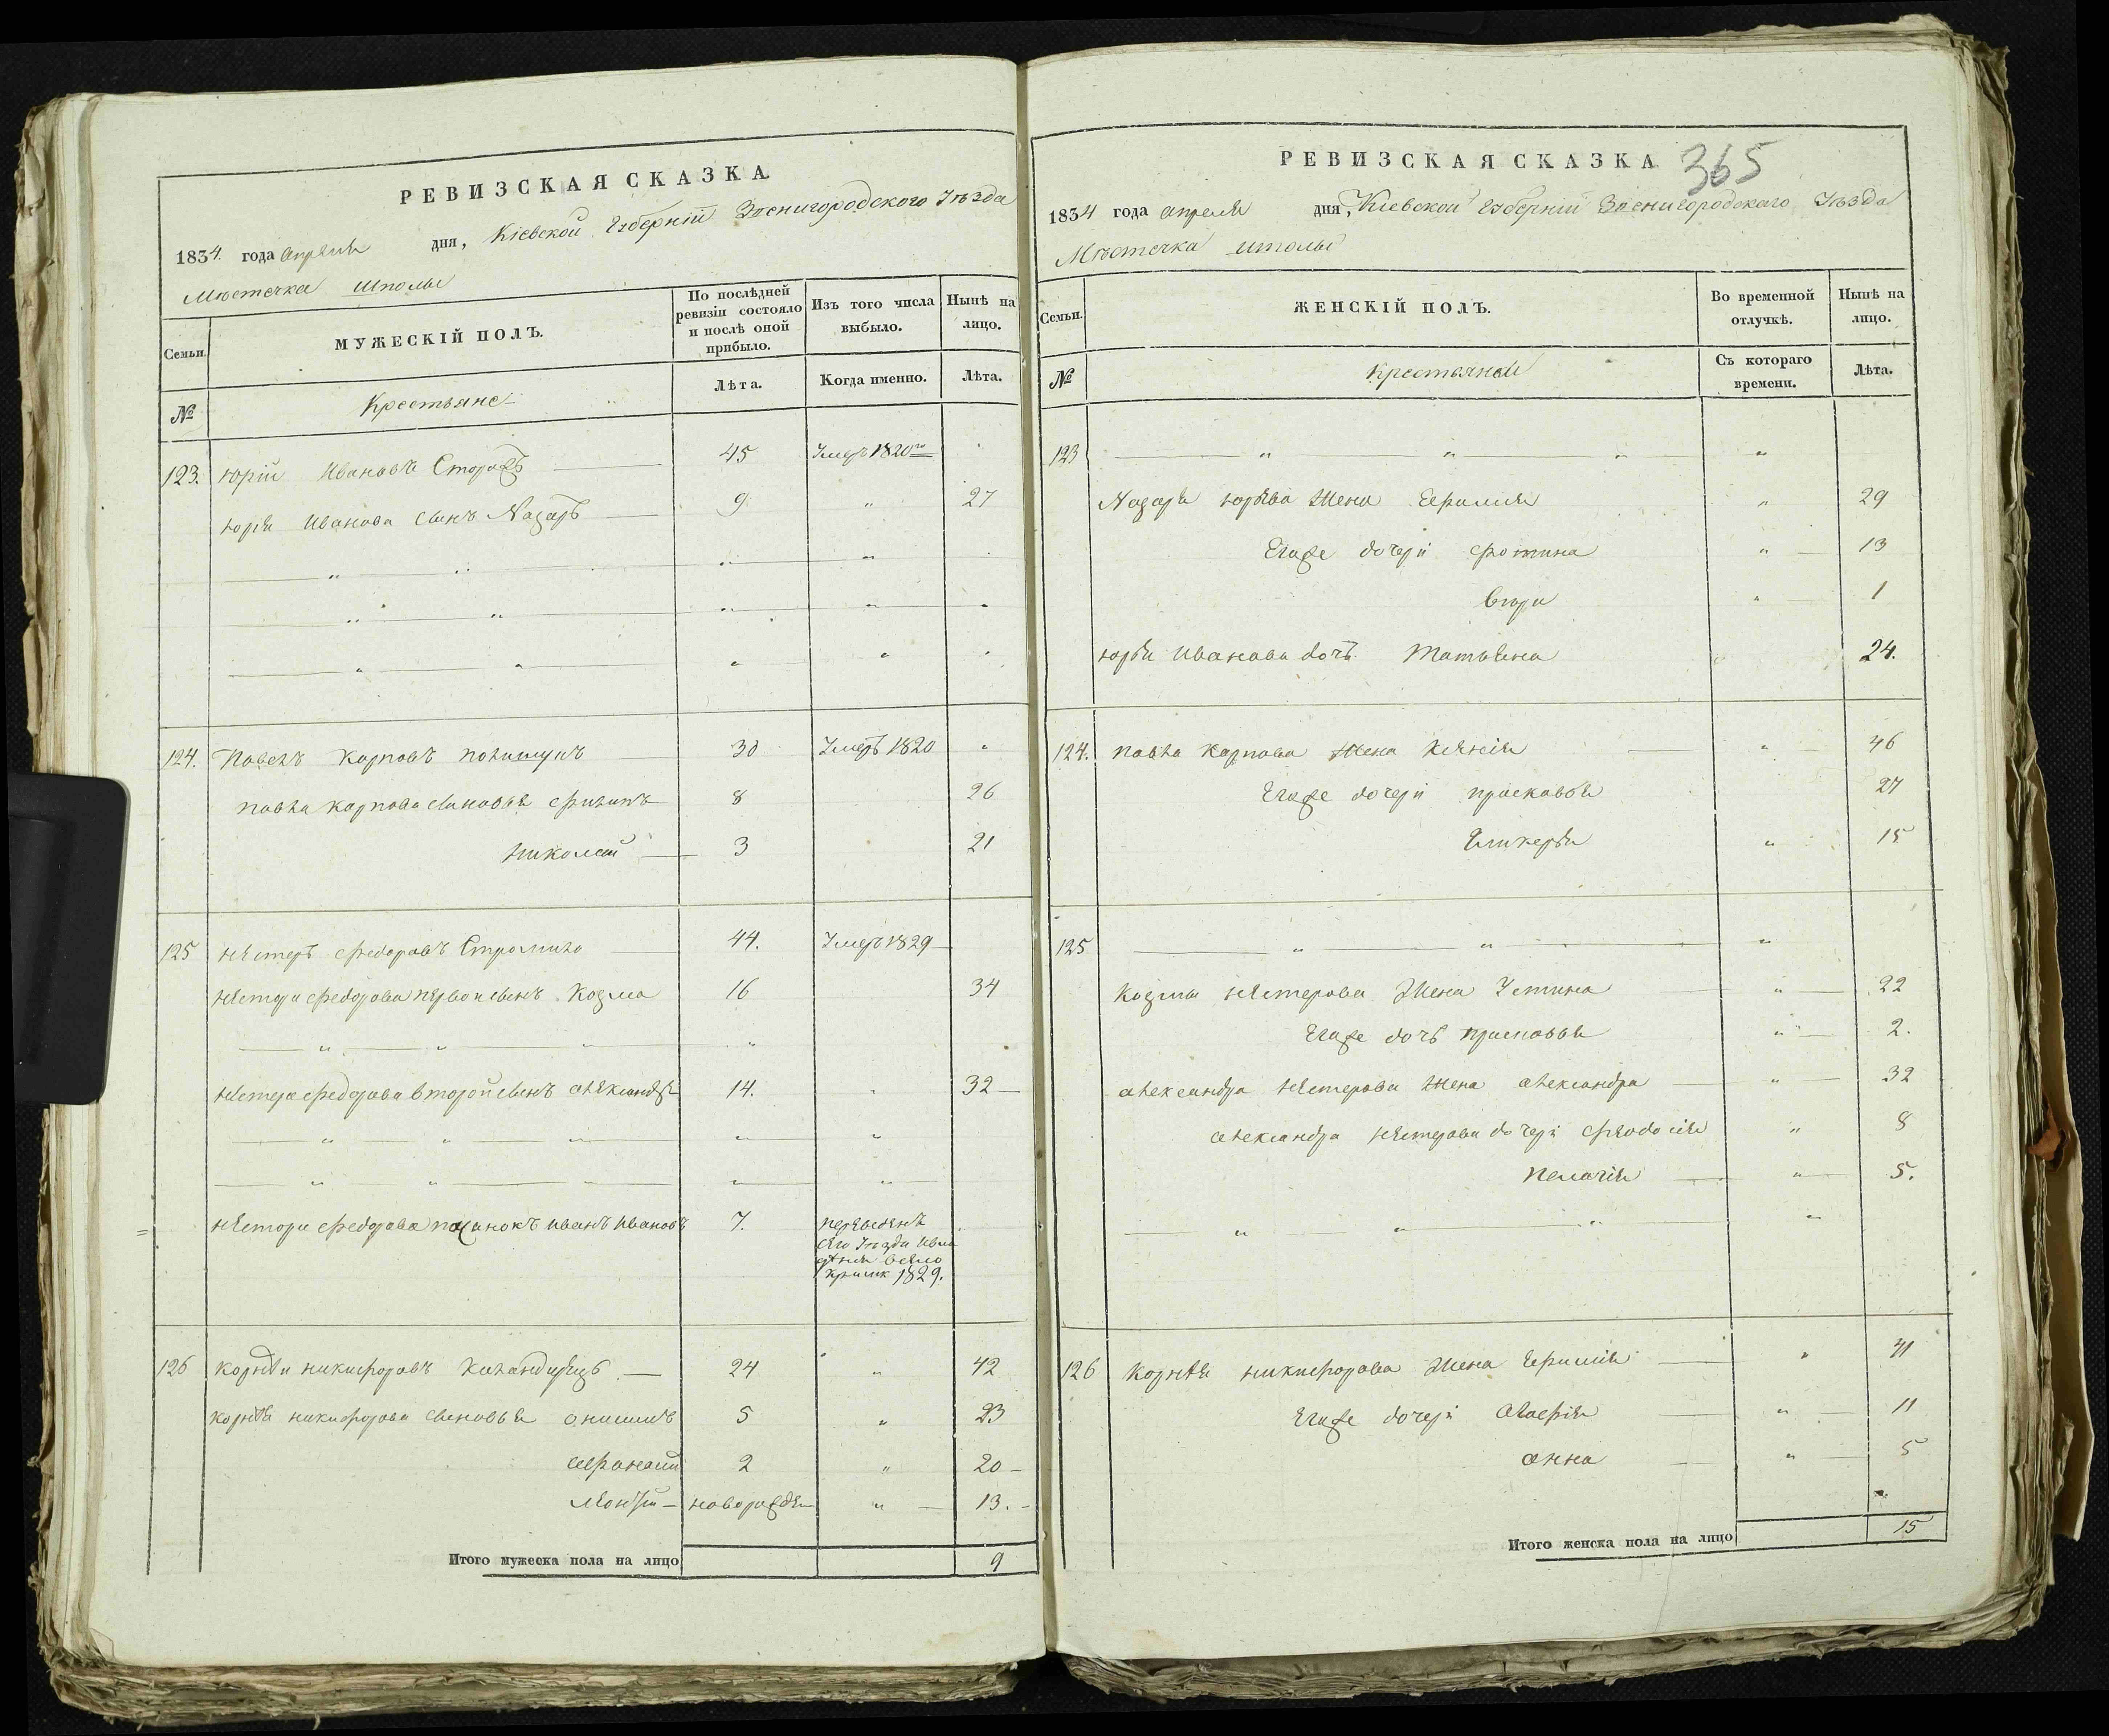 РЕВИЗСКАЯ СКАЗКА
1834. года апреля дня, Кіевской Губерніи Звенигородского Уѣзда
Мѣстечка Шполы
Семьи. МУЖЕСКІЙ ПОЛЪ. По послѣдней ревизіи состояло и послѣ оной прибыло. Изъ того числа выбыло. Нынѣ на лицо.
№ Крестьяне Лѣта. Когда именно. Лѣта.
123. Юрій Ивановъ Сторожъ 45 Умеръ 1820го
Юрія Иванова сынъ Назаръ 9. " 27
124. Павелъ Карповъ 30 Умеръ 1820 "
Павла Карпова сыновья Филипъ 8 26
Николай 3 21
125 Нестеръ Федоровъ 44. Умеръ 1829
Нестера Федорова первой сынъ Козма 16 34
Нестера Федорова второй сынъ Александръ 14. " 32
Нестера Федорова пасинокъ Иванъ Ивановъ 7. переведенъ
1829.
126 Корнѣй Никифоровъ 24 " 42
Корнѣя Никифорова сыновья Онисимъ 5 " 23
Афанасий 2 " 20
новорожден " 13.
Итого мужеска пола на лицо 9
РЕВИЗСКАЯ СКАЗКА 365
1834 года апреля дня, Кіевской Губерніи Звенигородскаго Уѣзда
Мѣстечка Шполы
Семьи. ЖЕНСКІЙ ПОЛЪ. Во временной отлучкѣ. Нынѣ на лицо.
№ Крестьянки Съ котораго времени. Лѣта.
123 " " " "
Назаря Юрьева жена Ефимия " 29
Егоже дочери Фотина " 13
" 1
Юрья Иванова дочь Татьяна " 24.
124. Павла Карпова жена Ксенія " 46
Егоже дочери Прасковья 27
Гликерья " 15
125 " " "
Козмы Нестерова жена Устина " 22
Егоже дочь Прасковья " 2.
Александра Нестерова жена Александра " 32
Александра Нестерова дочери Феодосія " 8
Пелагія " 5.
" " " "
126 Корнѣя Никифорова жена Ефимія " 41
Егоже дочери " 11
Анна " 5
Итого женска пола на лицо 15